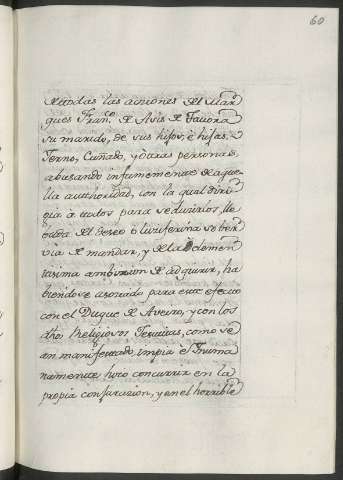 60
de todas las acciones del Mar-
ques Fran.co de Asis de Tavora
su marido, de sus hijos, è hijas,
Yerno, Cuñado, y otras personas,
abusando infamemente de aque-
lla authoridad, con la qual diri-
gia à todos para seducirlos, lle-
vada del deseo o luciferina sober-
via de mandar, y de la vehemen-
tisima ambicion de adquirir, ha-
biendose asociado para este efecto
con el Duque de Aveiro, y con los
dhos Religiosos Jesuitas, como se
an manifestado, impia è Inuma-
namente hizo concurrir en la
propia conjuracion, y en el horrible